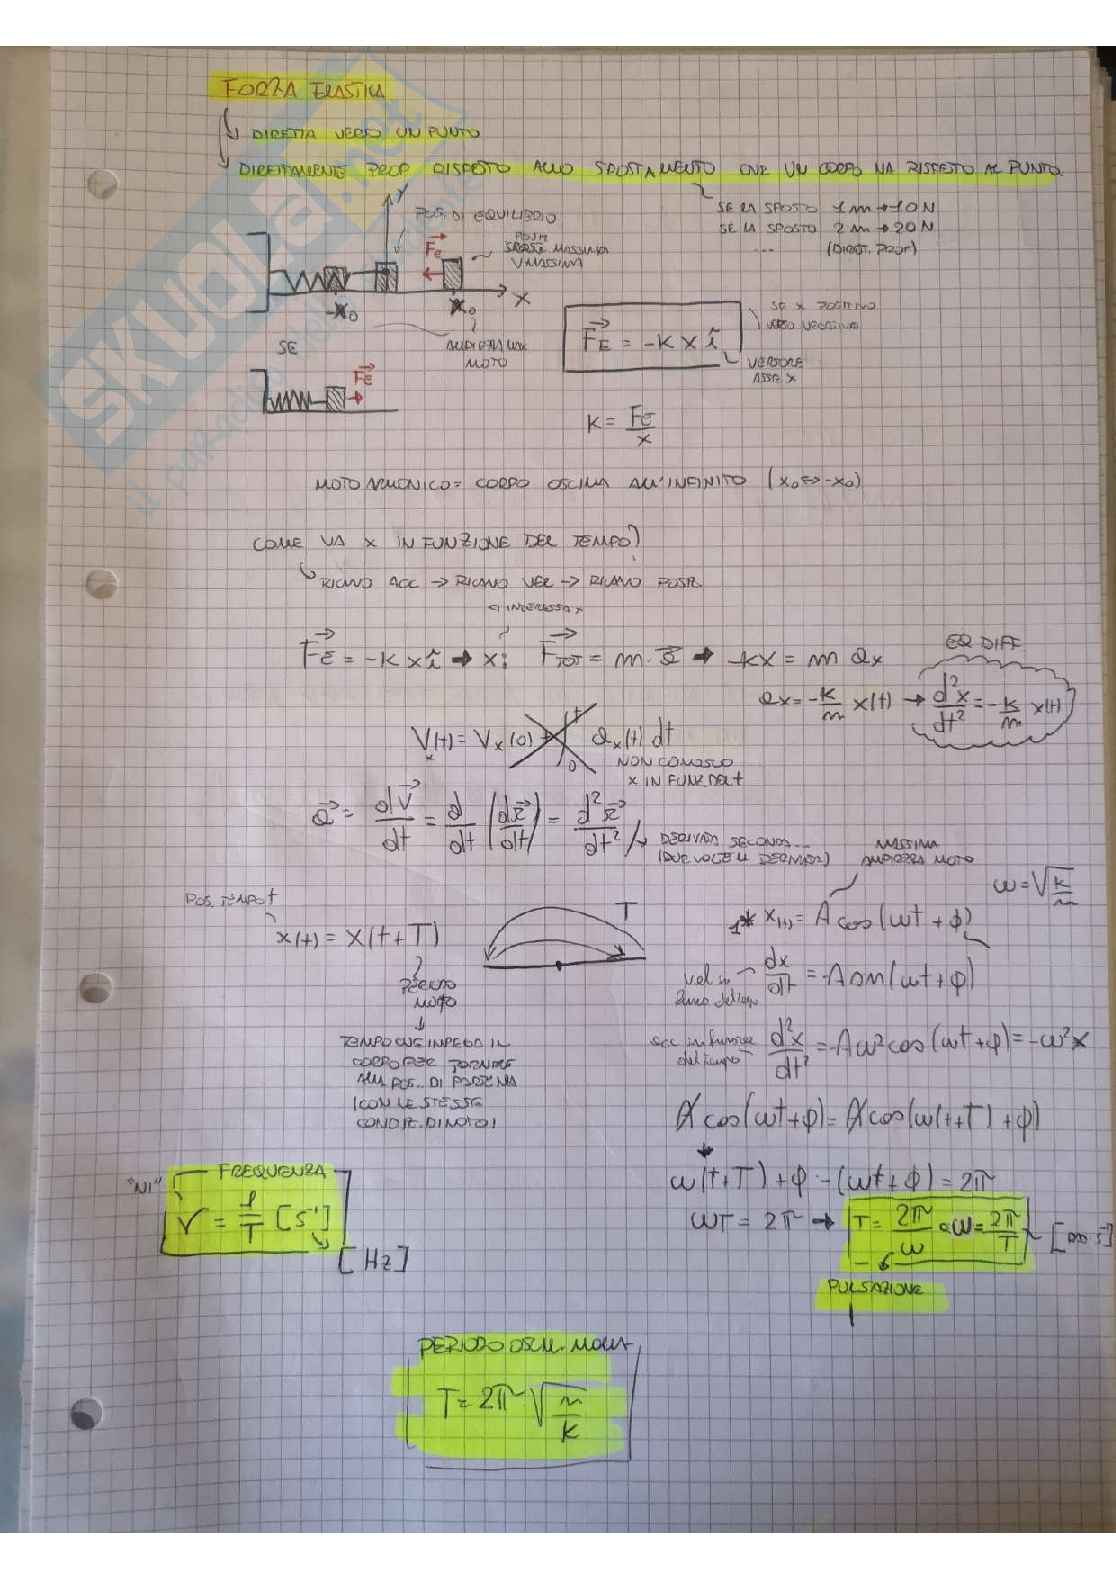 FORZA ELASTICA
DIRETTA VERSO UN PUNTO
DIRETTAMENTE PROP. RISPETTO ALLO SPOSTAMENTO CHE UN CORPO HA RISPETTO AL PUNTO.
SE LA SPOSTO 1 m → 10 N
SE LA SPOSTO 2 m → 20 N
... (DIRETT. PROP)
y
POS. DI EQUILIBRIO
Fe
MASSIMA
-X₀ X₀ X
AMPIEZZA
MOTO
SE
FE
FE = -K x î
SE X POSITIVO
VERSO NEGATIVO
VERSORE
ASSE X
K = FE/x
MOTO ARMONICO = CORPO OSCILLA ALL'INFINITO (x₀ ⇔ -x₀)
COME VA X IN FUNZIONE DEL TEMPO?
RICAVO ACC → RICAVO VEL → RICAVO POSIZ.
CI INTERESSA x
FE = -K x î → x: FTOT = m · a → -kx = m ax
EQ DIFF.
ax = -k/m x(t) → d²x/dt² = -k/m x(t)
Vx(t) = Vx(0) + ∫₀ᵗ ax(t) dt
NON CONOSCO
X IN FUNZ. DEL t
a = dv/dt = d/dt (dr/dt) = d²r/dt²
DERIVATA SECONDA...
(DUE VOLTE LA DERIVATA)
MASSIMA
AMPIEZZA MOTO
ω = √k/m
POS. TEMPO t
x(t) = x(t+T)
T
1* x(t) = A cos(ωt + φ)
PERIODO
MOTO
vel in
dx/dt = -A sin(ωt + φ)
TEMPO CHE IMPIEGA IL
CORPO PER TORNARE
ALLA POS. DI PARTENZA
(CON LE STESSE
CONDIZ. DI MOTO)
acc in funzione
del tempo
d²x/dt² = -Aω²cos(ωt+φ) = -ω²x
A cos(ωt+φ) = A cos(ω(t+T)+φ)
ω(t+T) + φ - (ωt+φ) = 2π
ωT = 2π → T = 2π/ω ω = 2π/T
PULSAZIONE
"NI"
FREQUENZA
ν = 1/T [s⁻¹]
[Hz]
PERIODO OSCILL. MOLLA
T = 2π √m/k